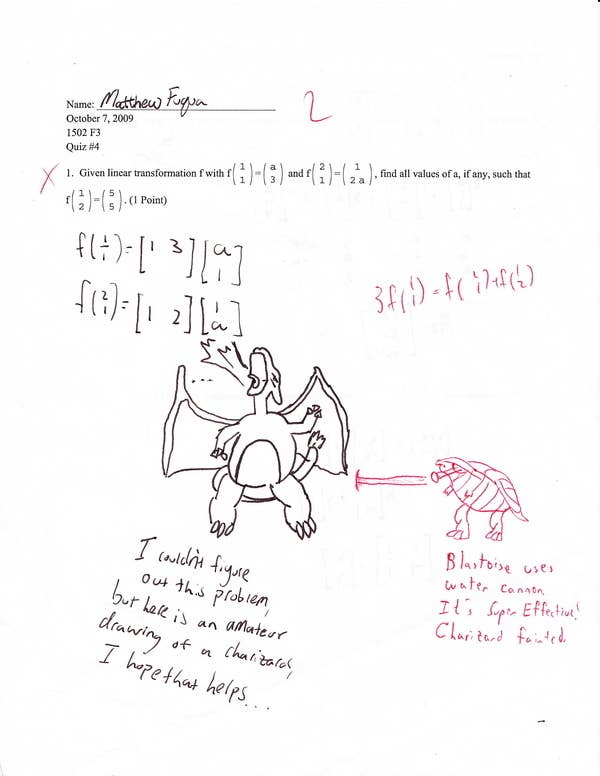 Name: Matthew Fuqua
2
October 7, 2009
1502 F3
Quiz #4
X 1. Given linear transformation f with f(1 1)=(a 3) and f(2 1)=(1 2a), find all values of a, if any, such that
f(1 2)=(5 5). (1 Point)
f(1 1)=[1 3][a 1]
f(2 1)=[1 2][1 a]
3f(1 1)=f(2 1)+f(1 2)
...
I couldn't figure
out this problem,
but here is an amateur
drawing of a charizard,
I hope that helps...
Blastoise uses
water cannon
It's Super Effective!
Charizard fainted.